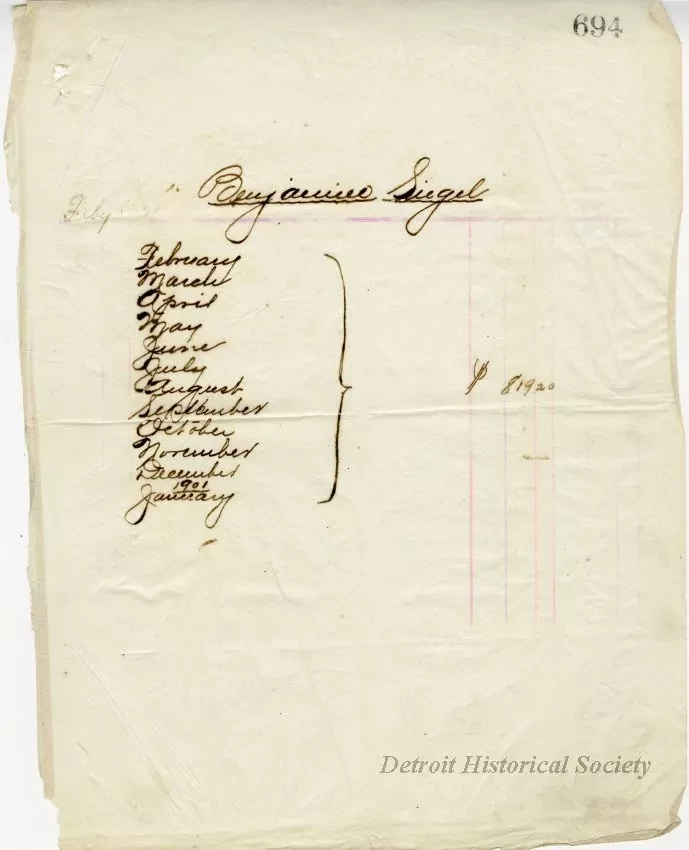 694
Benjamin Siegel
Feby
February
March
April
May
June
July
August
September
October
November
December
1901
January
$ 819 20
Detroit Historical Society